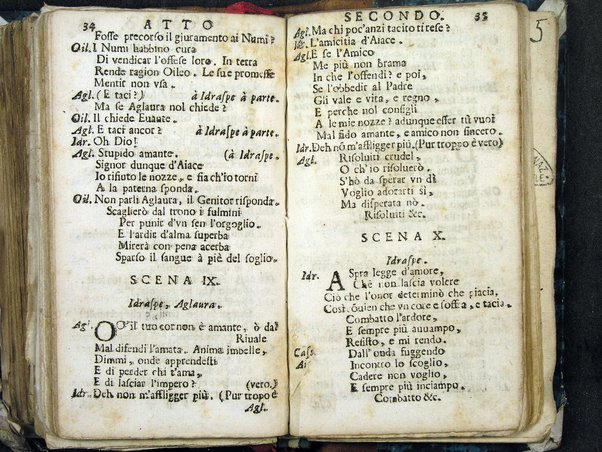 34 ATTO
Fosse precorso il giuramento ai Numi?
Oil. I Numi habbino cura
Di vendicar l'offese loro. In terra
Rende ragion Oileo. Le sue promesse
Mentir non usa.
Agl. (E taci?) à Idraspe à parte.
Ma se Aglaura nol chiede?
Oil. Il chiede Euante.
Agl. E taci ancor? à Idraspe à parte.
Idr. Oh Dio!
Agl. Stupido amante. (à Idraspe.
Signor dunque d'Aiace
Io rifiuto le nozze, e sia ch'io torni
A la paterna sponda.
Oil. Non parli Aglaura, il Genitor risponda.
Scaglierò dal trono i fulmini
Per punir d'un sen l'orgoglio.
E l'ardir d'alma superba
Mirerà con pena acerba
Sparso il sangue à piè del soglio.
SCENA IX.
Idraspe, Aglaura.
Agl. O O'il tuo cor non è amante, ò dal
Riuale
Mal difendi l'amata. Anima imbelle,
Dimmi, onde apprendesti
E di perder chi t'ama
E di lasciar l'impero? (vero.)
Idr. Deh non m'affligger più. (Pur tropo è
Agl.
SECONDO. 35
Agl. Ma chi poc'anzi tacito ti rese?
Idr. L'amicitia d'Aiace.
Agl. E se l'Amico
Me più non brama
In che l'offendi? e poi,
Se l'obbedir al Padre
Gli vale e vita, e regno,
E perche nol consigli
A le mie nozze? adunque esser tù vuoi
Mal fido amante, e amico non sincero.
Idr. Deh nõ m'affligger più. (Pur troppo è vero)
Agl. Risoluiti crudel,
O ch'io risoluerò.
S'hò da sperar un dì
Voglio adorarti sì,
Ma disperata nò.
Risoluiti &c.
SCENA X.
Idraspe.
Idr. ASpra legge d'amore,
Chè non lascia volere
Ciò che l'onor determinò che piacia,
Così quien un core e soffra, e tacia.
Combatto l'ardore,
E sempre più auuampo,
Resisto, e mi rendo.
Cass. Dall'onda fuggendo
Ai Incontro lo scoglio,
Cader non voglio,
E sempre più inciampo.
Combatto &c.
5